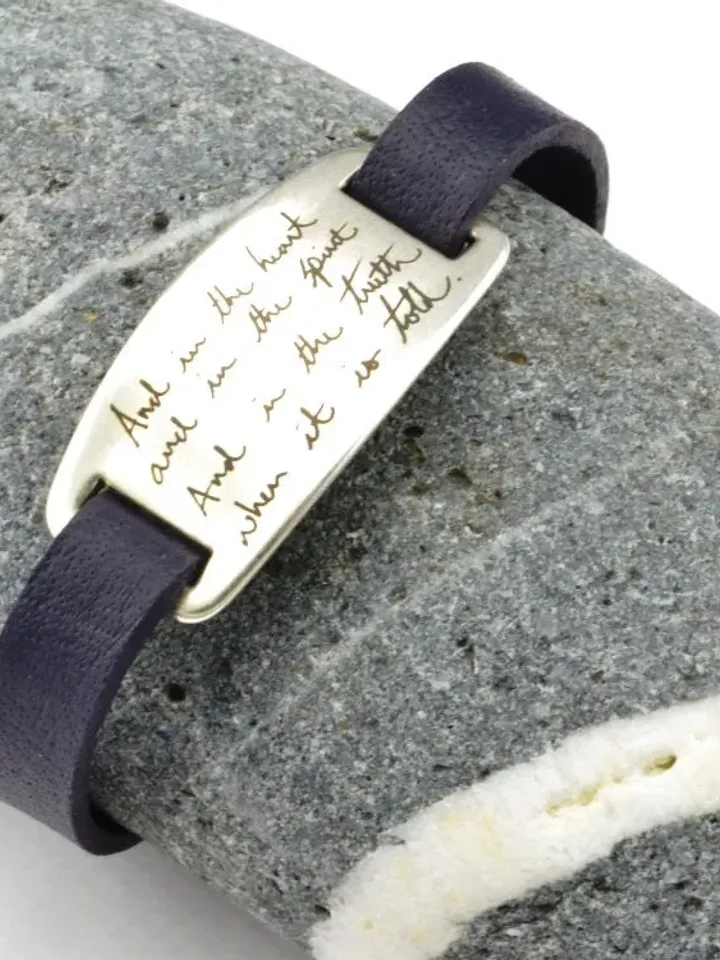 And in the heart
and in the spirit
And in the truth
when it is told.